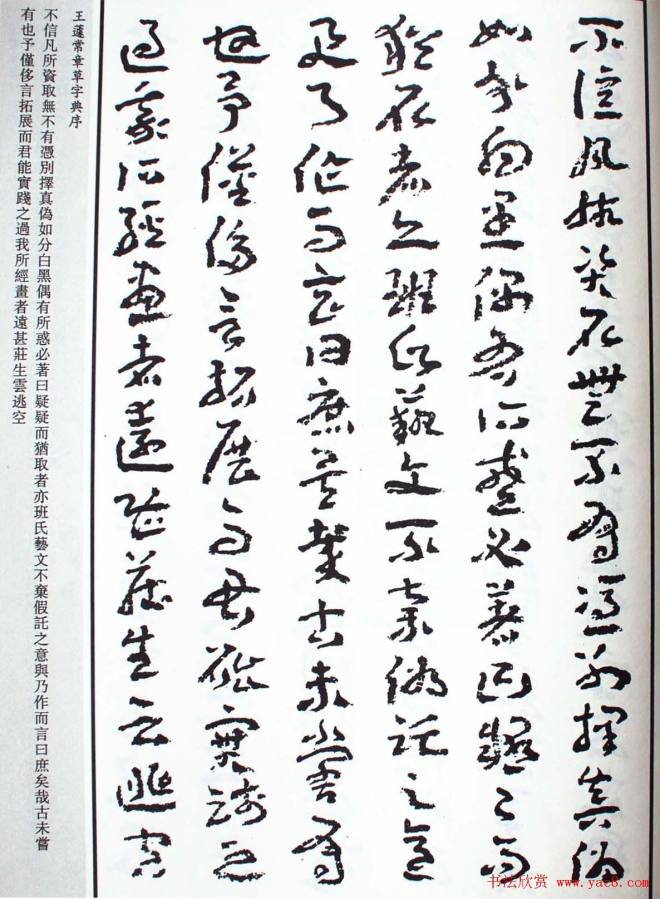 不信凡所資取無不有憑別擇真偽
如分白黑偶有所惑必著曰疑疑而
猶取者亦班氏藝文不棄假託之意
與乃作而言曰庶矣哉古未嘗有
也予僅侈言拓展而君能實踐之
過我所經畫者遠甚莊生云逃空
王蘧常章草字典序
不信凡所資取無不有憑別擇真偽如分白黑偶有所惑必著曰疑疑而猶取者亦班氏藝文不棄假託之意與乃作而言曰庶矣哉古未嘗
有也予僅侈言拓展而君能實踐之過我所經畫者遠甚莊生雲逃空
书法欣赏 www.yac8.com